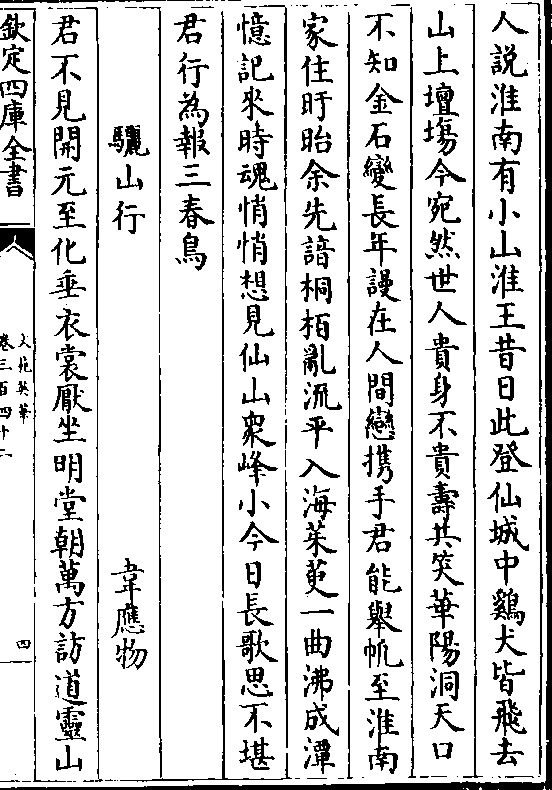 人說淮南有小山淮王昔日此登仙城中鷄犬皆飛去
山上壇場今宛然世人貴身不貴壽共笑華陽洞天口
不知金石變長年謾在人間戀携手君能舉帆至淮南
家住盱眙余先諳桐栢亂流平入海茱萸一曲沸成潭
憶記來時魂悄悄想見仙山衆峰小今日長歌思不堪
君行為報三春鳥
驪山行　韋應物
君不見開元至化垂衣裳厭坐明堂朝萬方訪道靈山
欽定四庫全書
文苑英華
卷三百四十二
四